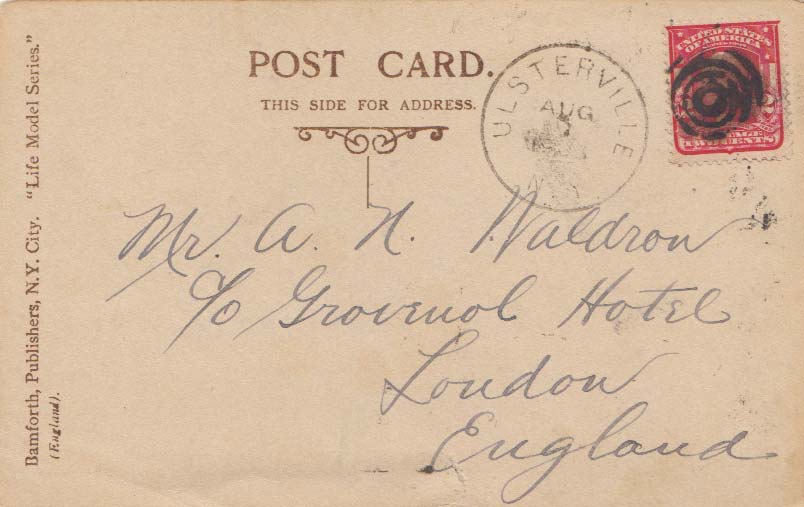 POST CARD.
THIS SIDE FOR ADDRESS.
ULSTERVILLE
AUG
N.Y.
UNITED STATES
OF AMERICA
2
TWO CENTS
Mr. A. N. Waldron
c/o Grovenol Hotel
London
England
Bamforth, Publishers, N.Y. City. "Life Model Series."
(England).